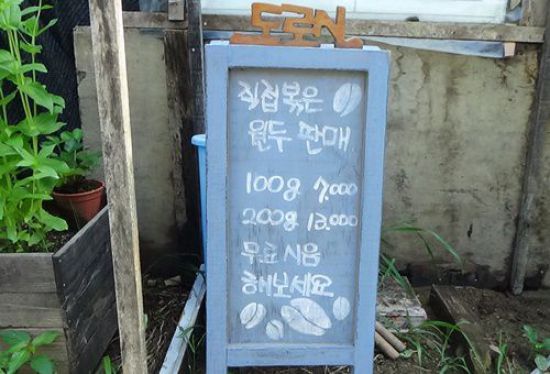 직접볶은
원두 판매
100g 7,000
200g 13,000
무료시음
해보세요